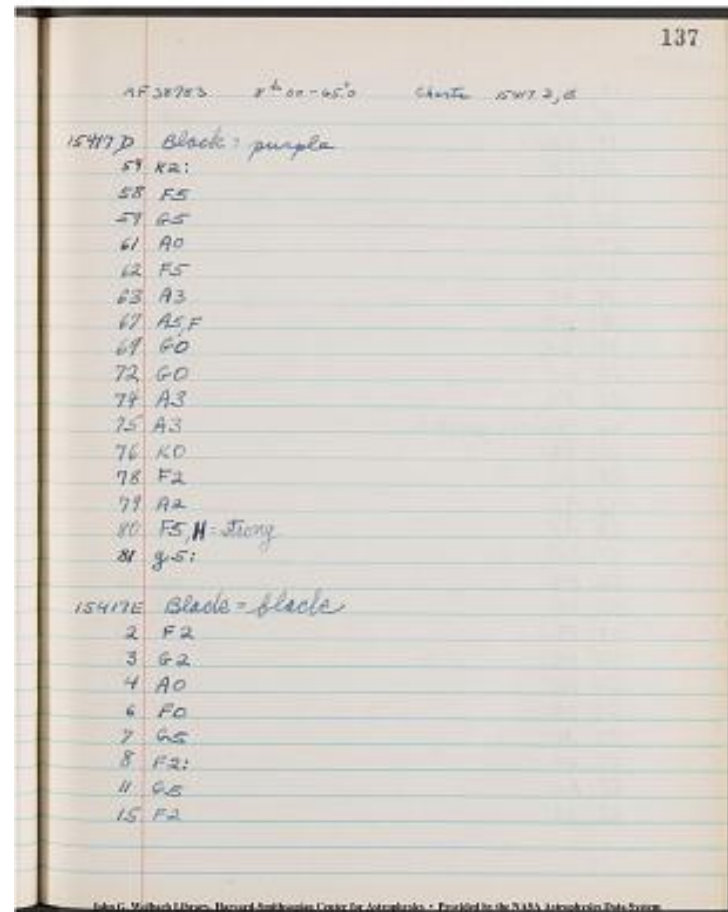 137
AF 38783 8h 00 -65°0 Charts 15417 D, E
15417 D Black = purple
59 K2:
58 F5
59 G5
61 A0
62 F5
63 A3
67 A5, F
69 G0
72 G0
74 A3
75 A3
76 K0
78 F2
79 A2
80 F5, H = strong
81 g5:
15417E Black = black
2 F2
3 G2
4 A0
6 F0
7 G5
8 F2:
11 G5
15 F2
John G. Wolbach Library, Harvard-Smithsonian Center for Astrophysics • Provided by the NASA Astrophysics Data System